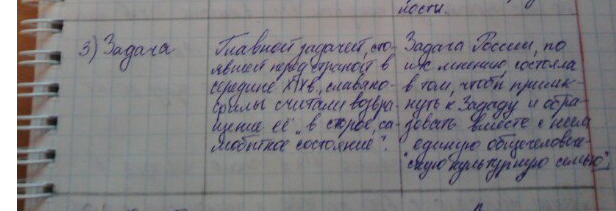 ности.
3) Задача
Главной задачей, сто-
явшей перед страной в
середине XIXв, славяно-
филы считали возвра-
щение её „в старое, са-
мобытное состояние".
Задача России, по
их мнению, состояла
в том, чтобы примк-
нуть к Западу и обра-
зовать вместе с ним
"единую общечеловече-
скую культурную семью"